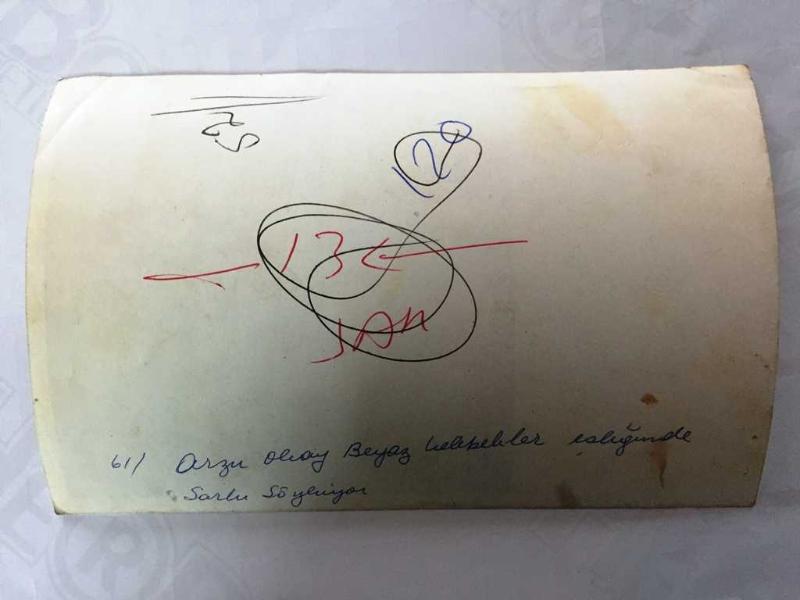 52
120
13
JAN
61) Arzu Okay Beyaz kelebekler eşliğinde
Şarkı Söylüyor